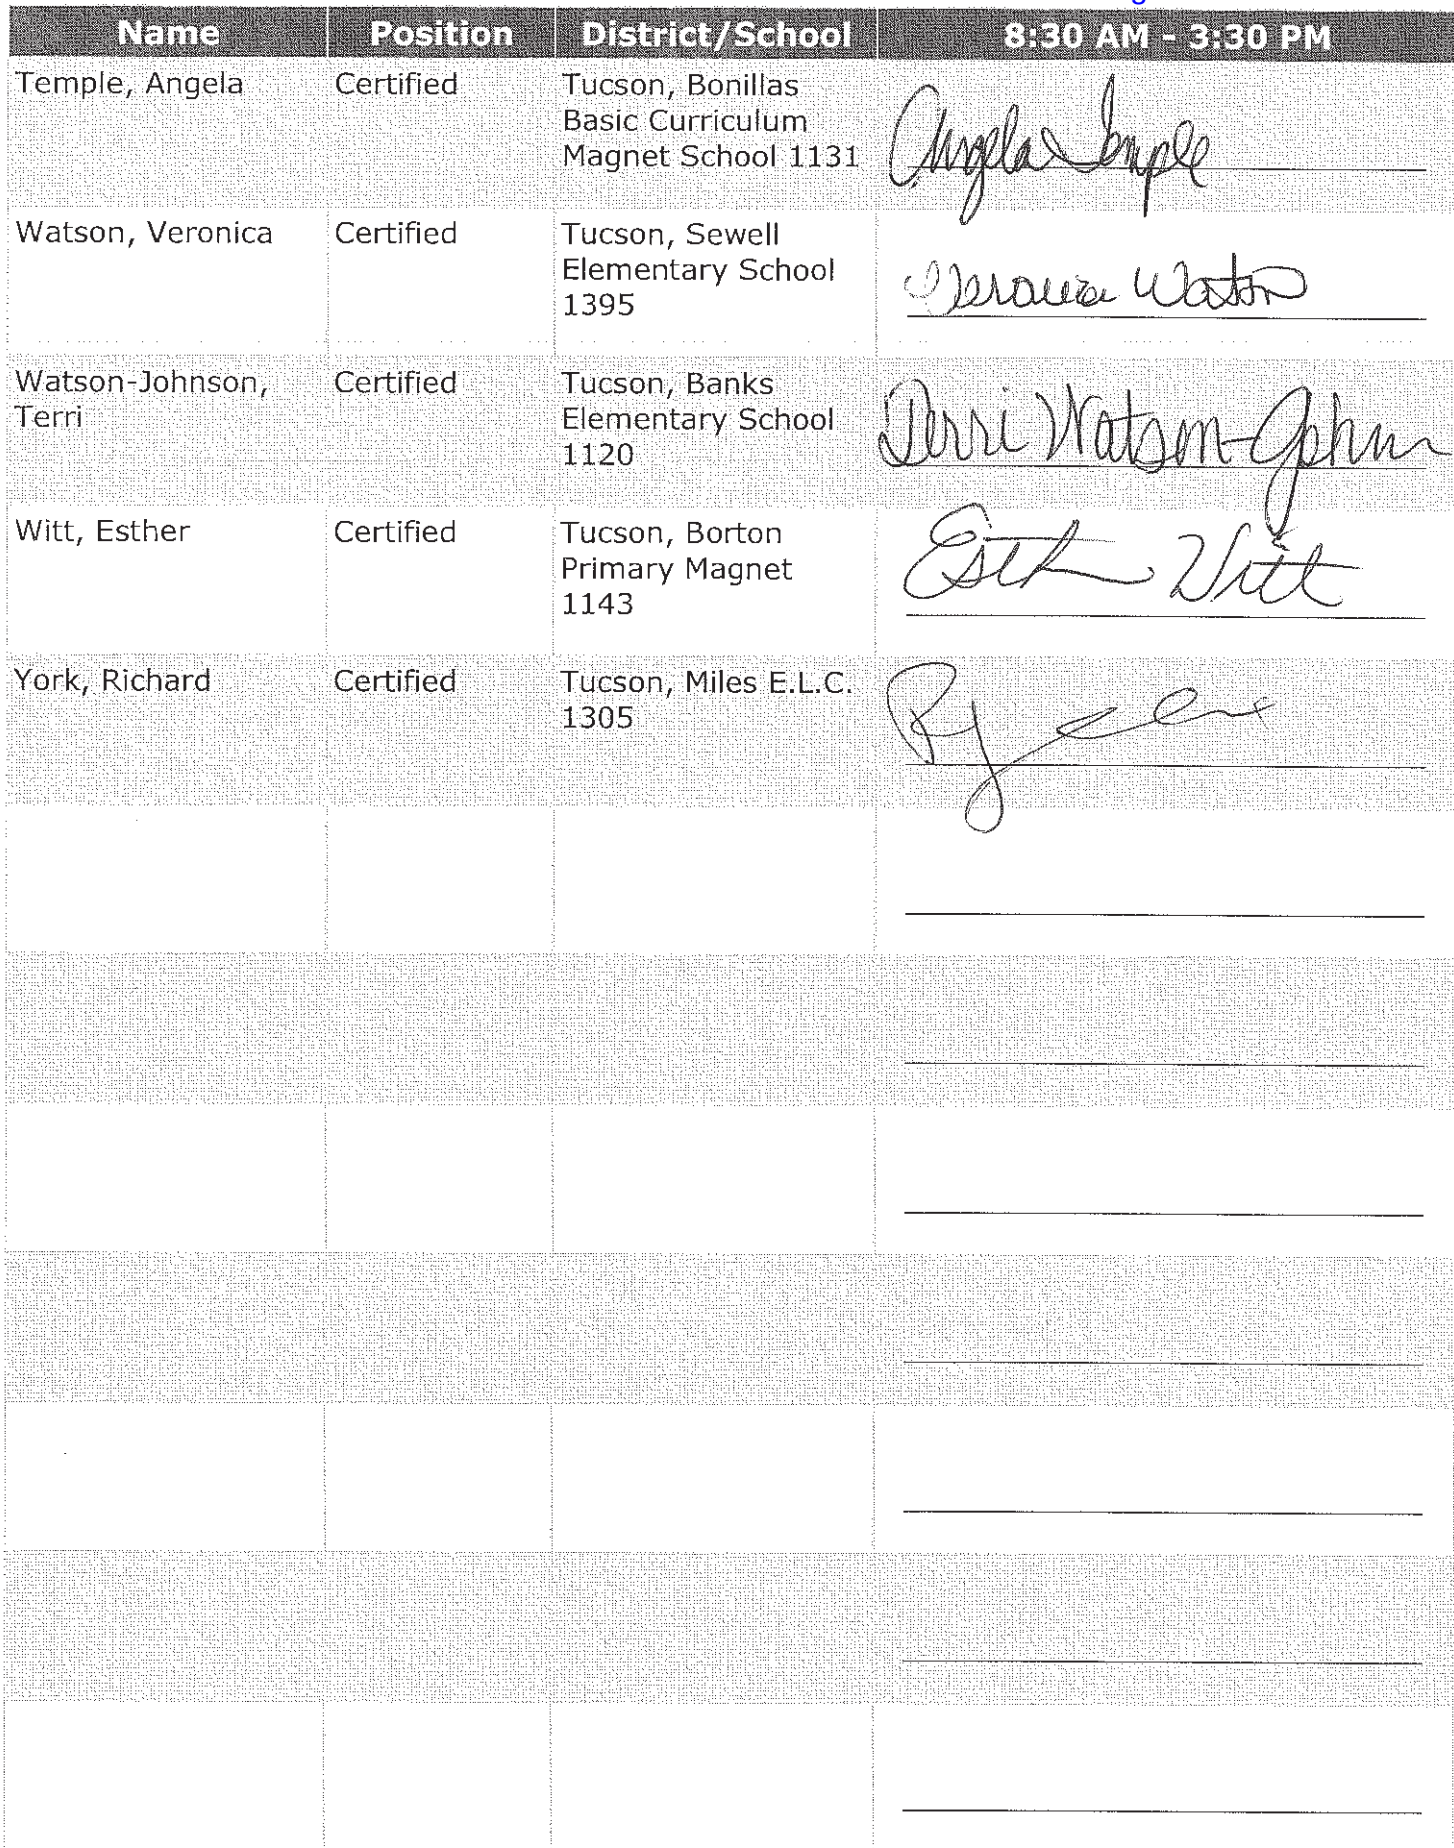 Name Position District/School 8:30 AM - 3:30 PM
Temple, Angela Certified Tucson, Bonillas
Basic Curriculum
Magnet School 1131
Angela Temple
Watson, Veronica Certified Tucson, Sewell
Elementary School
1395
Veronica Watson
Watson-Johnson, Certified Tucson, Banks
Terri Elementary School
1120
Terri Watson-John
Witt, Esther Certified Tucson, Borton
Primary Magnet
1143
Esther Witt
York, Richard Certified Tucson, Miles E.L.C.
1305